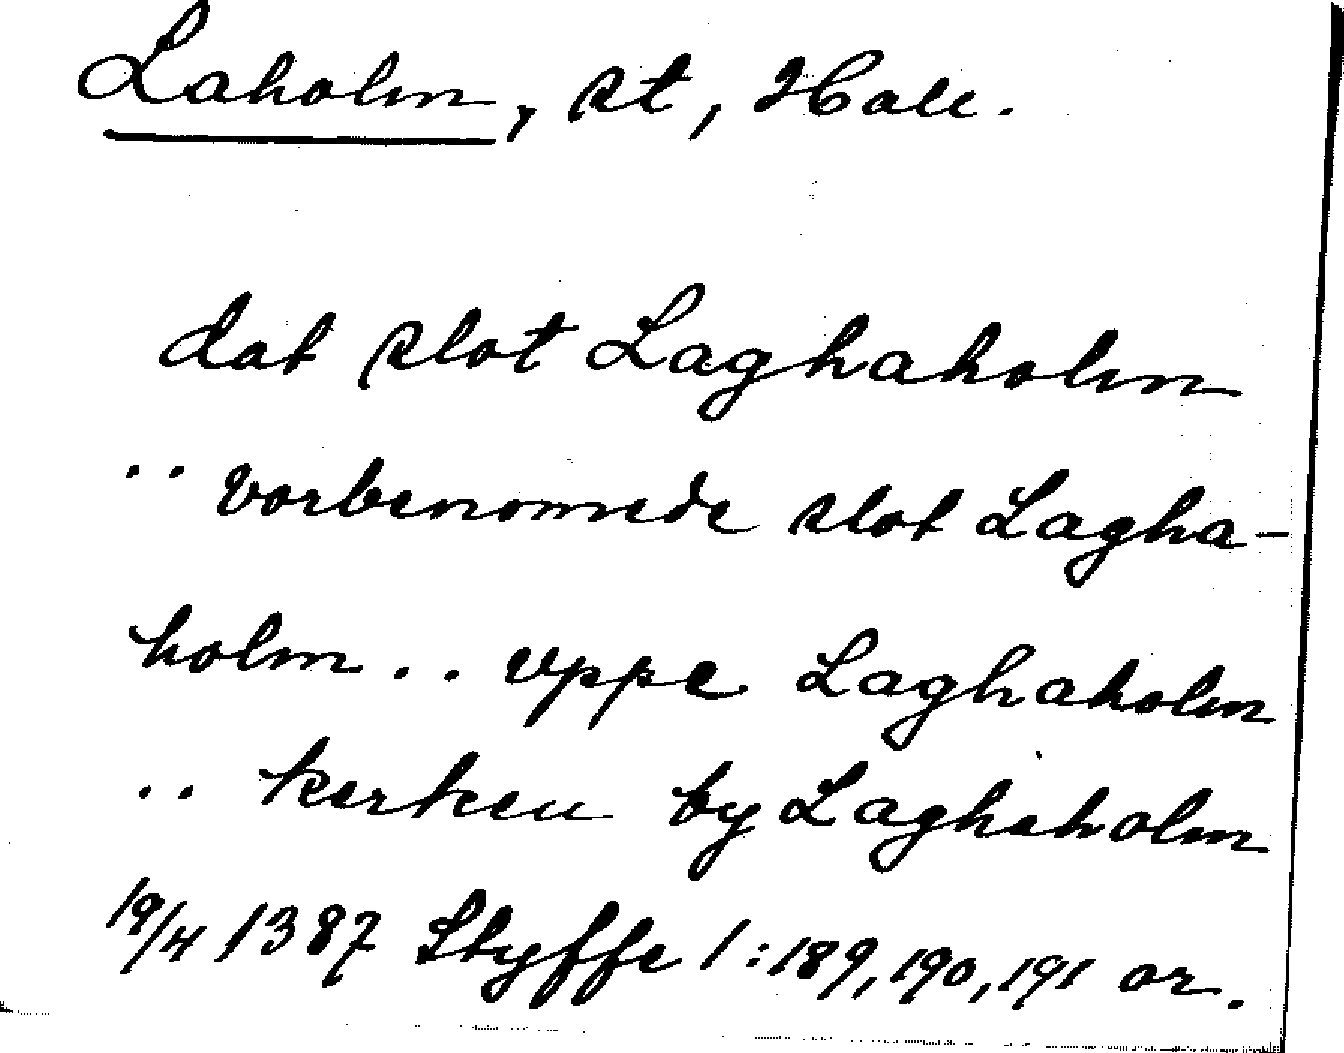 Laholm, st, Hall.
dat slot Laghaholm
.. vorbenomede slot Lagha-
holm .. vppe Laghaholm
.. kerken by Laghaholm
19/4 1387 Styffe 1:189, 190, 191 or.